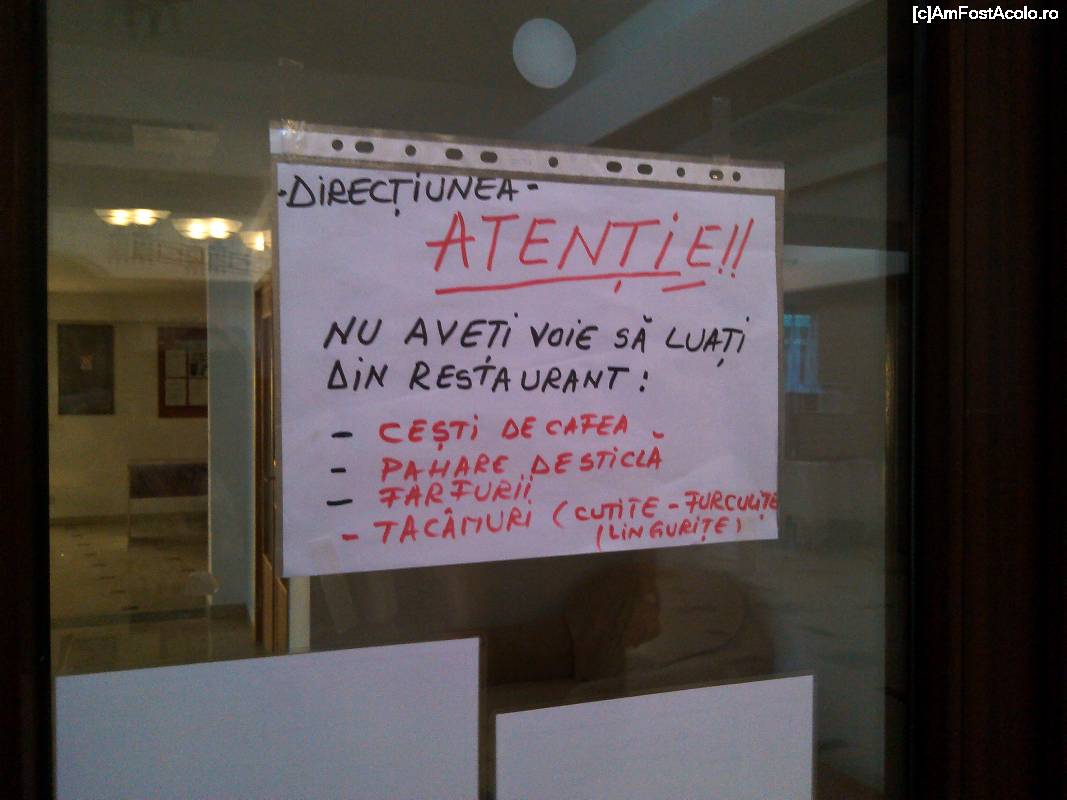 [c]AmFostAcolo.ro
-DIRECȚIUNEA-
ATENȚIE!!
NU AVEȚI VOIE SĂ LUAȚI
DIN RESTAURANT:
- CEȘTI DE CAFEA
- PAHARE DE STICLĂ
- FARFURII
- TACÂMURI (CUȚITE - FURCULIȚE
(LINGURIȚE)